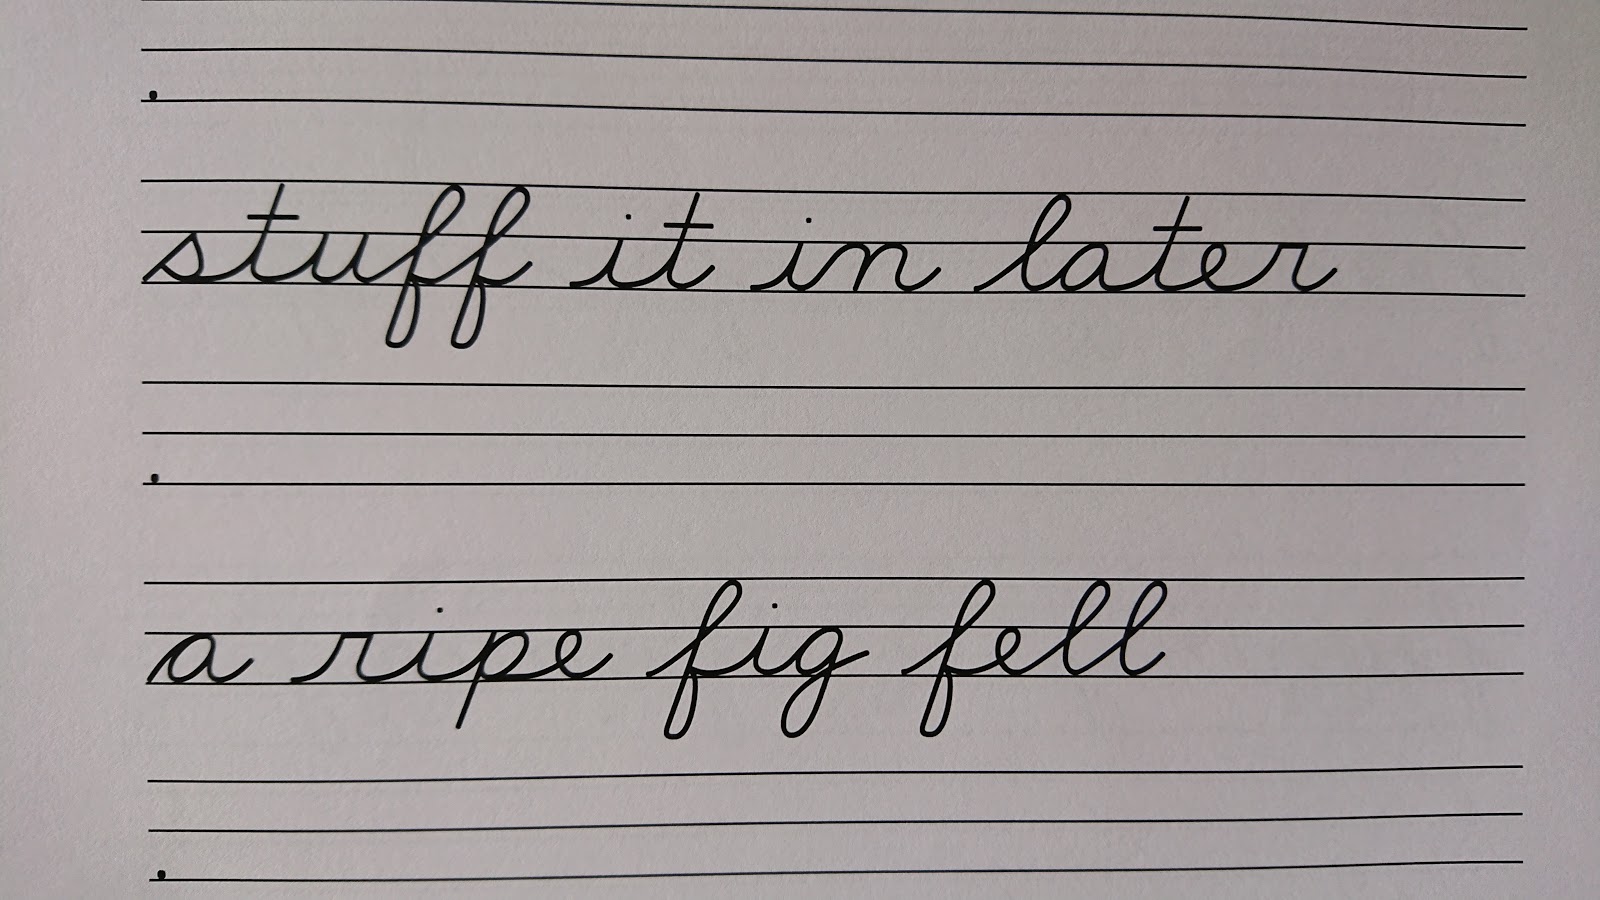 stuff it in later
a ripe fig fell